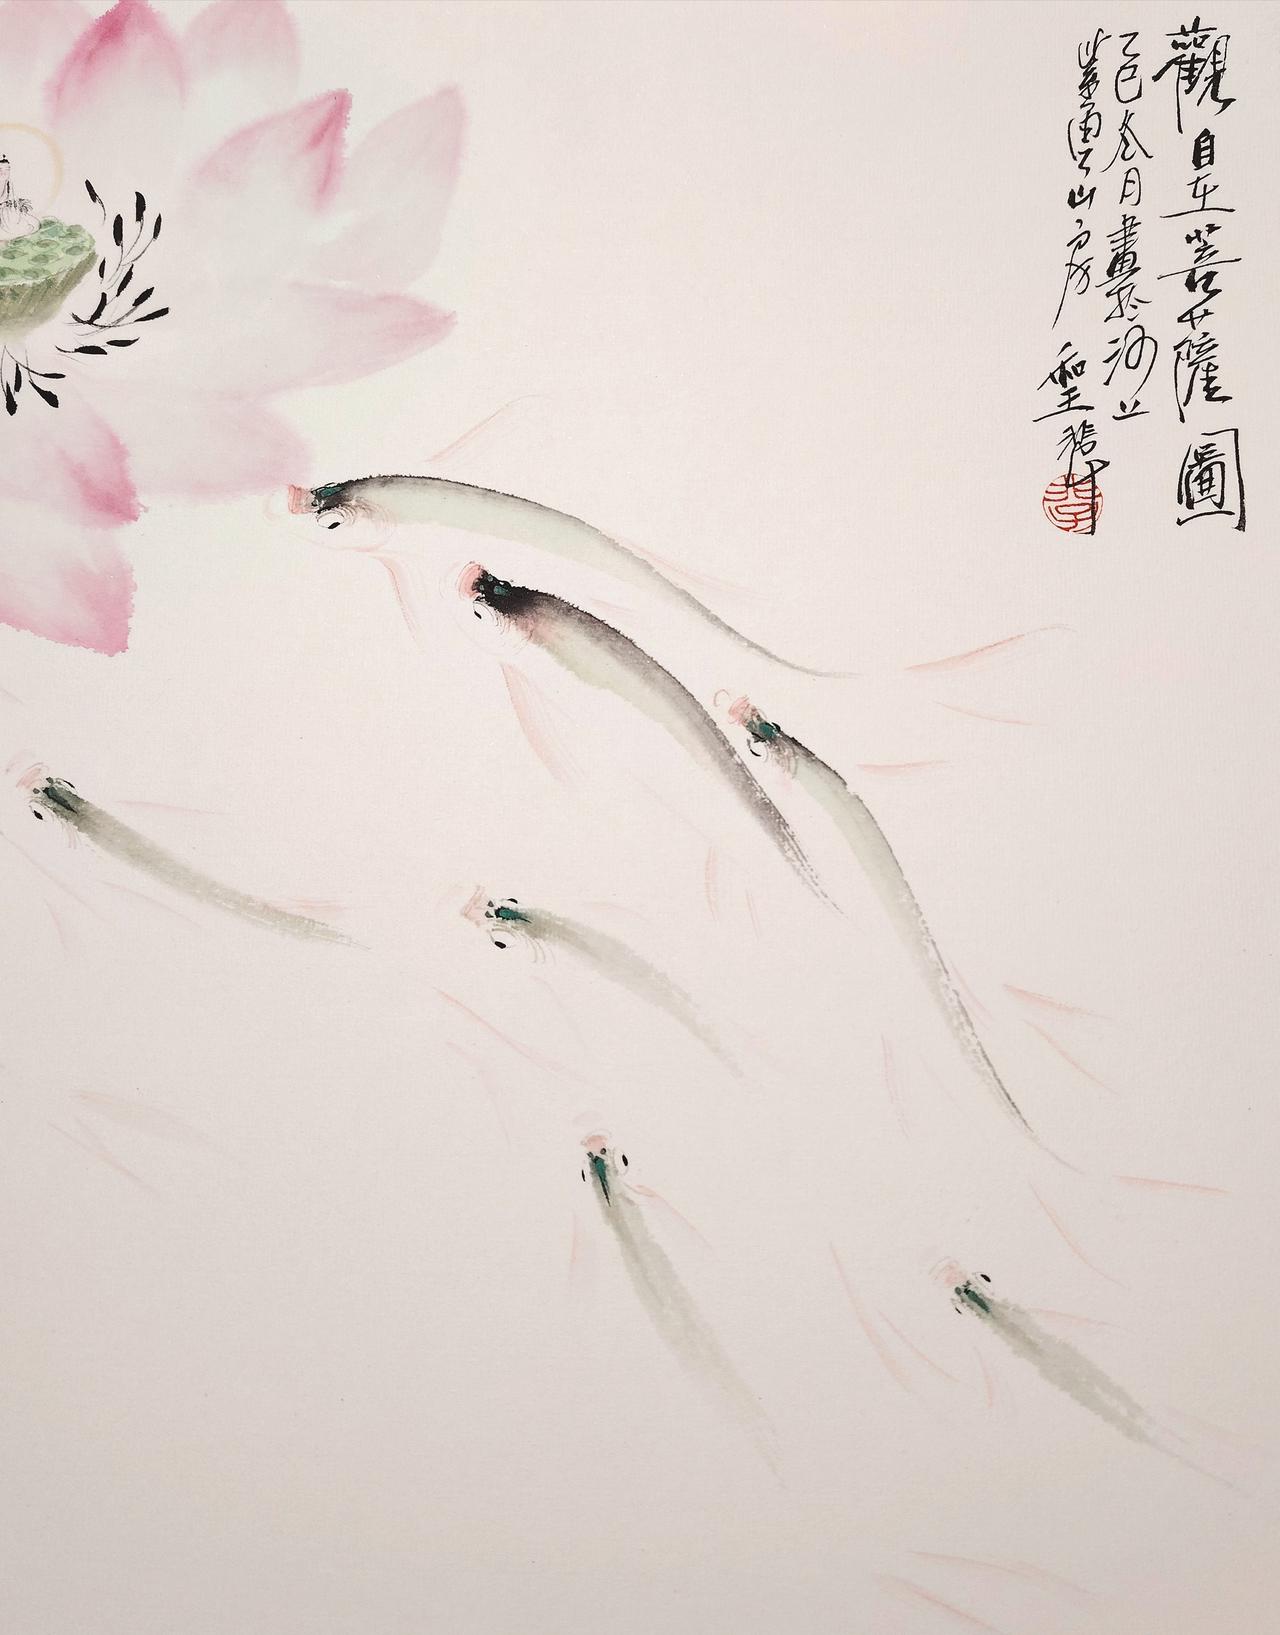 觀自在菩薩圖
乙巳冬月畫於沙上
紫雲山房